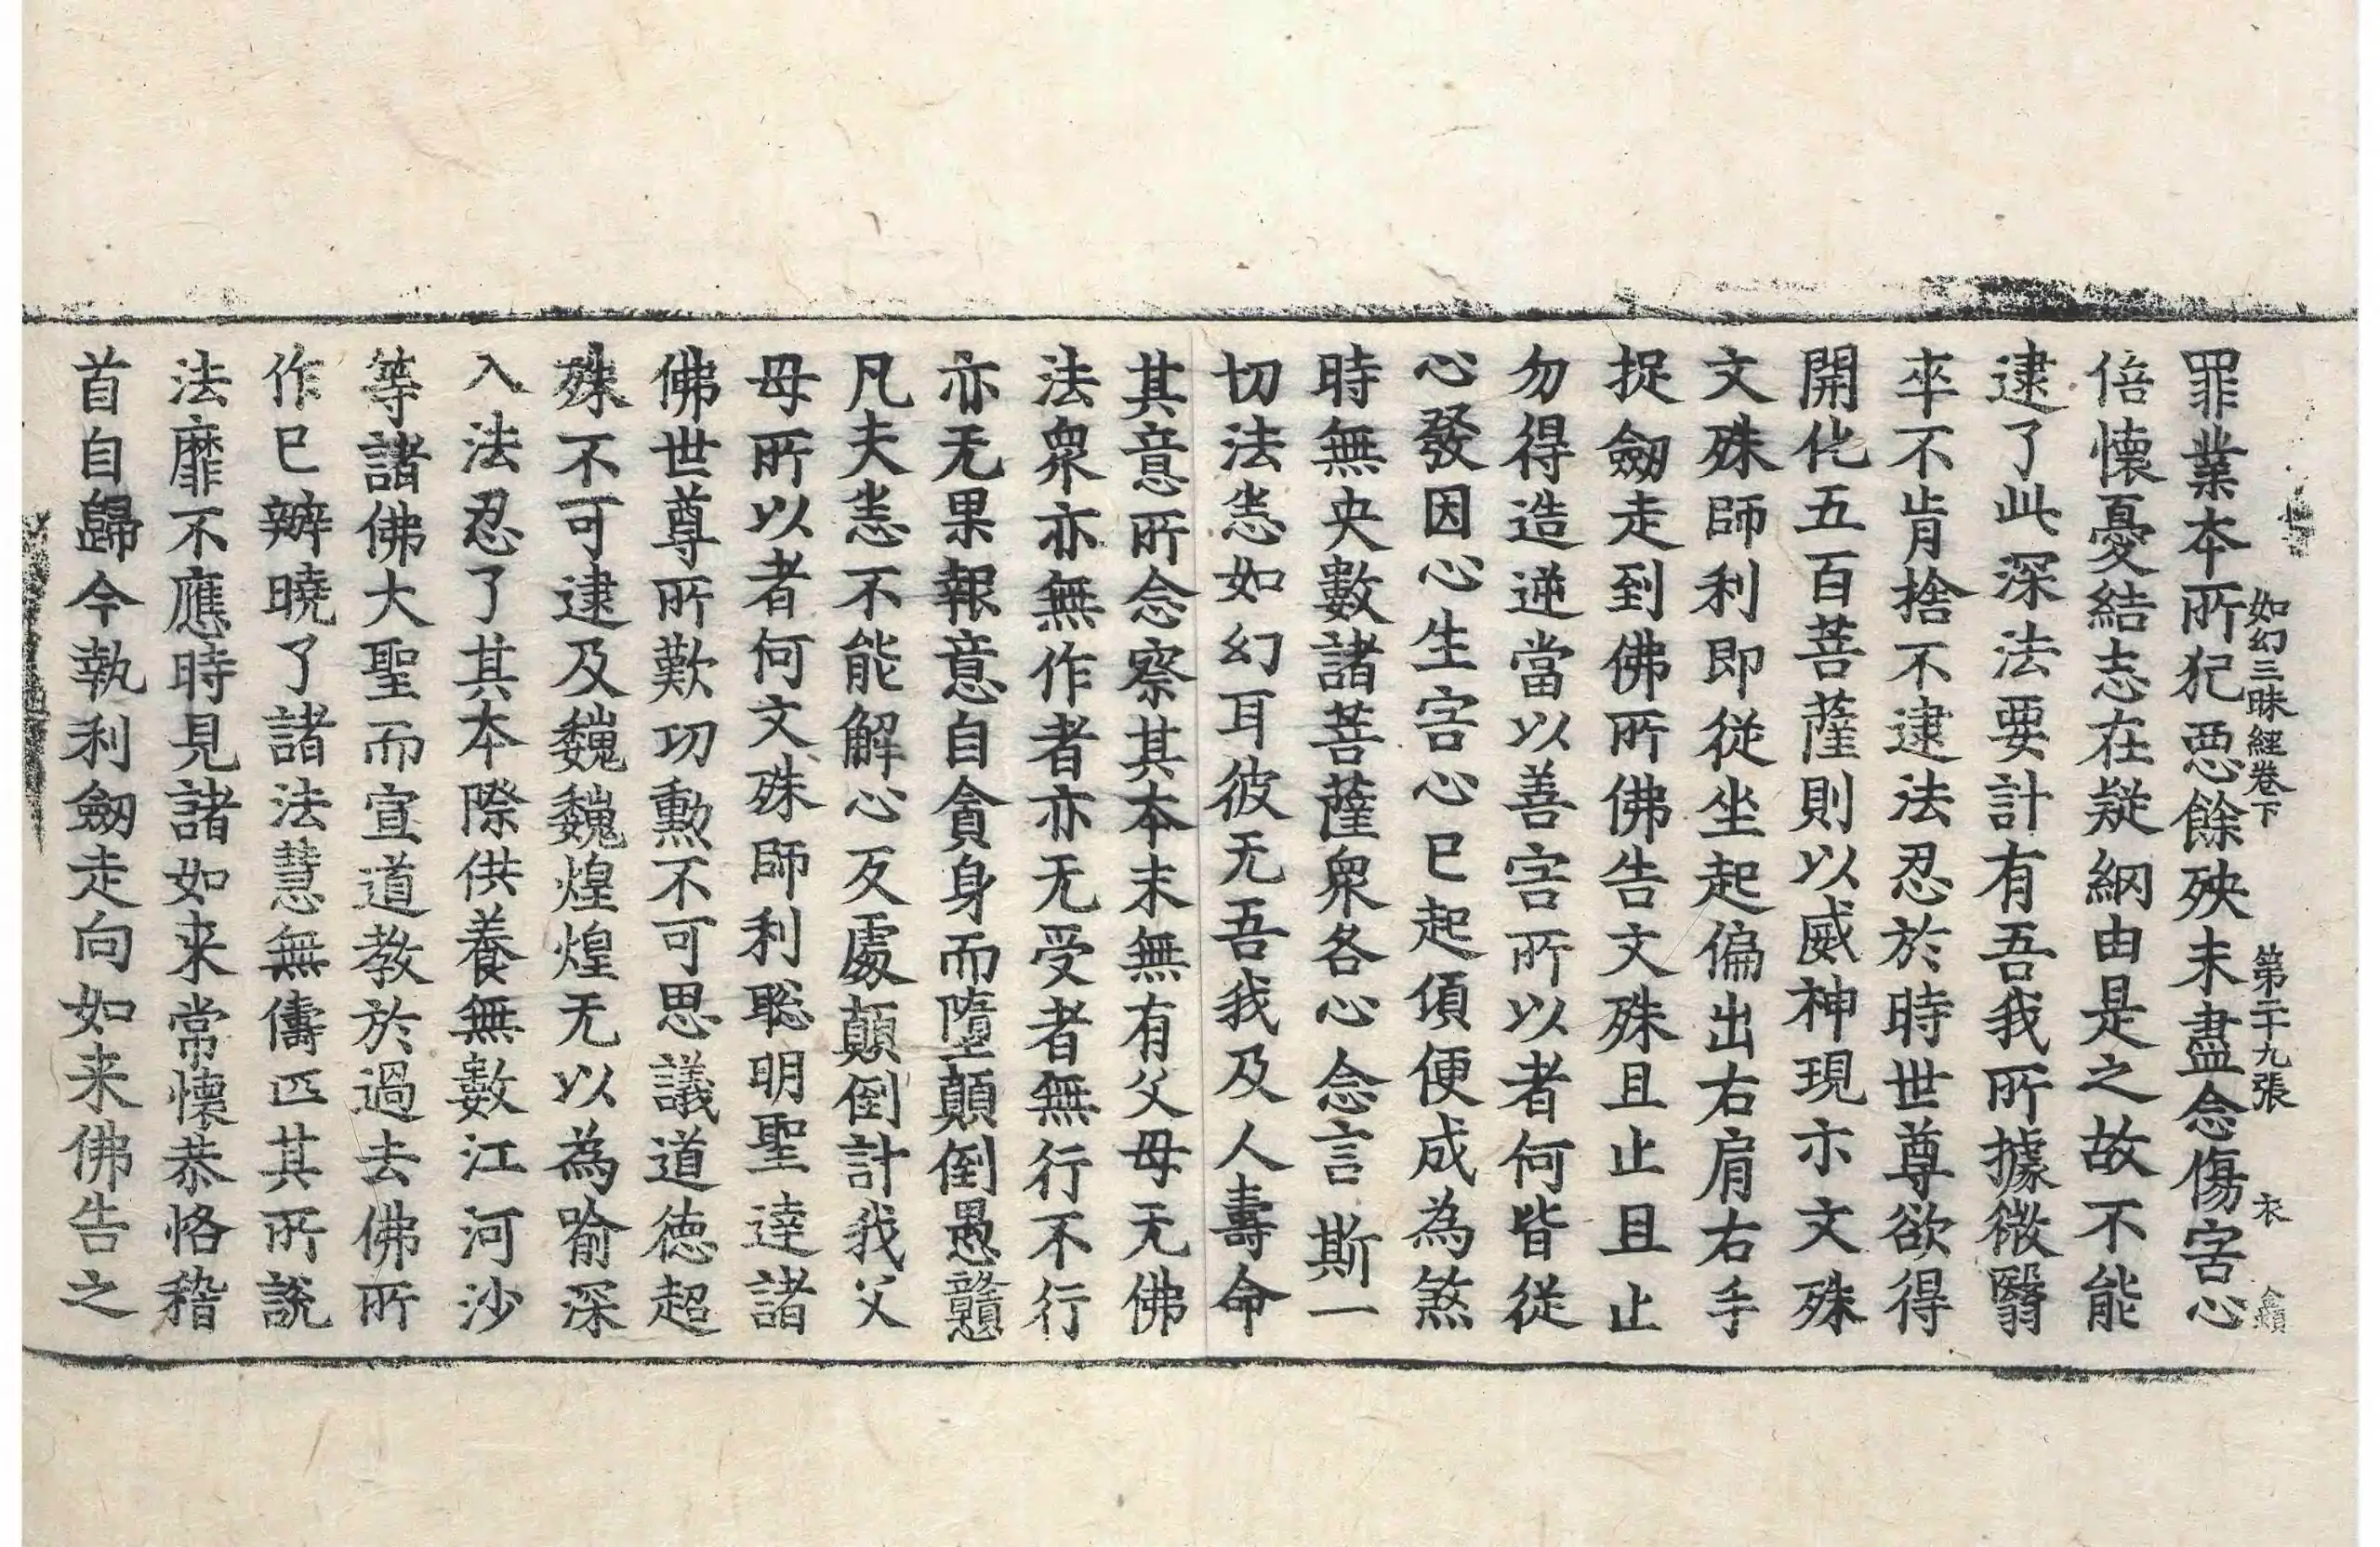 如幻三昧經卷下 第二十九張 衣
罪業本所犯惡餘殃未盡念傷害心
倍懷憂結志在疑網由是之故不能
逮了此深法要計有吾我所據微翳
卒不肯捨不逮法忍於時世尊欲得
開化五百菩薩則以威神現示文殊
文殊師利即從坐起偏出右肩右手
捉劒走到佛所佛告文殊且止且止
勿得造逆當以善害所以者何皆從
心發因心生害心已起頃便成為煞
時無央數諸菩薩衆各心念言斯一
切法恚如幻耳彼无吾我及人壽命
其意所念察其本末無有父母无佛
法衆亦無作者亦无受者無行不行
亦无果報意自貪身而墮顛倒愚戇
凡夫恚不能解心反處顛倒計我父
母所以者何文殊師利聡明聖達諸
佛世尊所歎功勲不可思議道徳超
殊不可逮及巍巍煌煌无以為喻深
入法忍了其本際供養無數江河沙
等諸佛大聖而宣道教於過去佛所
作已辦曉了諸法慧無儔匹其所說
法靡不應時見諸如来常懷恭恪稽
首自歸今執利劒走向如来佛告之